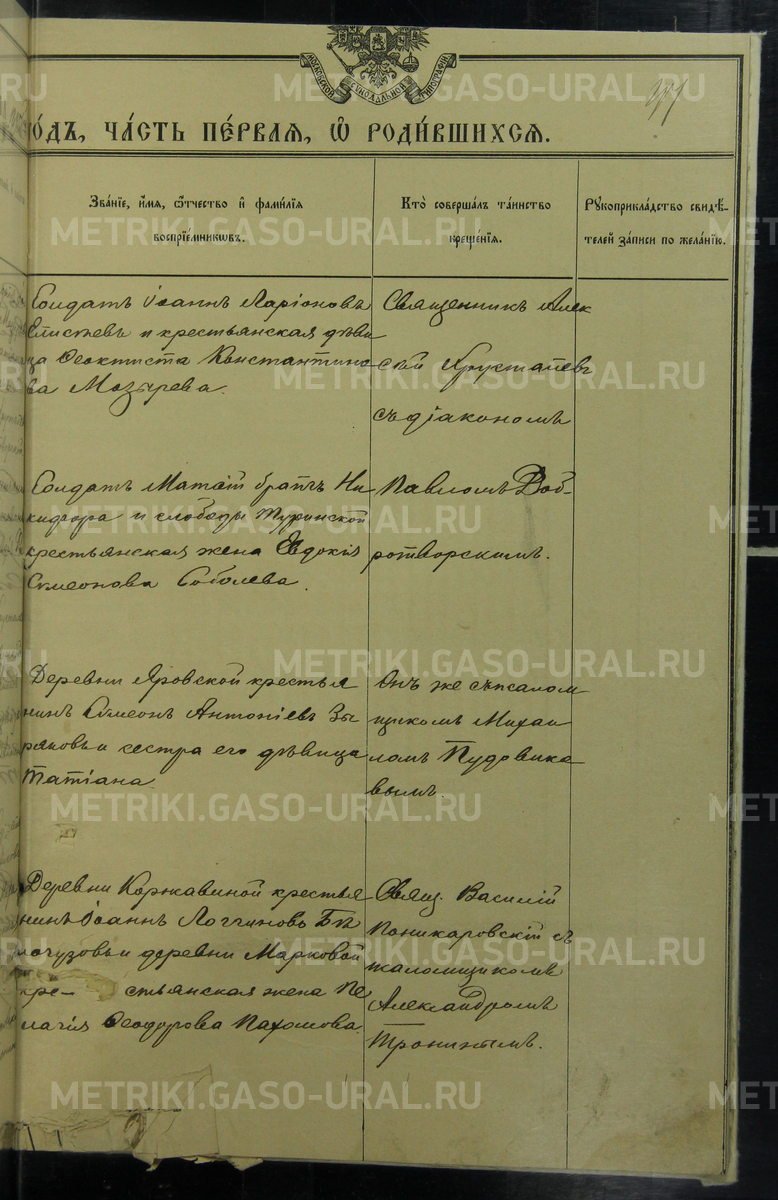 МОСКОВСКОЙ СѴНОДАЛЬНОЙ ТИПОГРАФІИ
METRIKI.GASO-URAL.RU
го́дъ, ча́сть пе́рвая, ѡ҆ роди́вшихся.
Зва́нїе, и҆́мя, ѻ҆́тчество и҆ фами́лїя
воспрїе́мникѡвъ.
Кто̀ соверша́лъ та́инство
креще́нїя.
Рꙋкоприкла́дство свидѣ́-
телей за́писи по жела́нїю.
Солдатъ Іоаннъ Ларіоновъ
Елисѣевъ и крестьянская дѣви
ца Ѳеоктиста Константино-
ва Мозырева.
Священникъ Алек
сѣй Хрусталевъ
съ діакономъ
Солдатъ Матѳій братъ Ни-
кифора и слободы Туринской
крестьянская жена Евдокія
Симеонова Соболева.
Павломъ Доб-
ротворскимъ.
Деревни Яровской крестья
нинъ Симеонъ Антоніевъ Зы
ряновъ и сестра его дѣвица
Татіана
Онъ же съ псалом
щикомъ Михаи
ломъ Пудовико-
вымъ.
Деревни Коржавиной крестья
нинъ Іоаннъ Логгиновъ Бѣ
логузовъ и деревни Марковой
кре- стьянская жена Пе
лагія Ѳеодорова Пахомова
Свящ. Василій
Поникаровскій съ
псаломщикомъ
Александромъ
Тронинымъ.